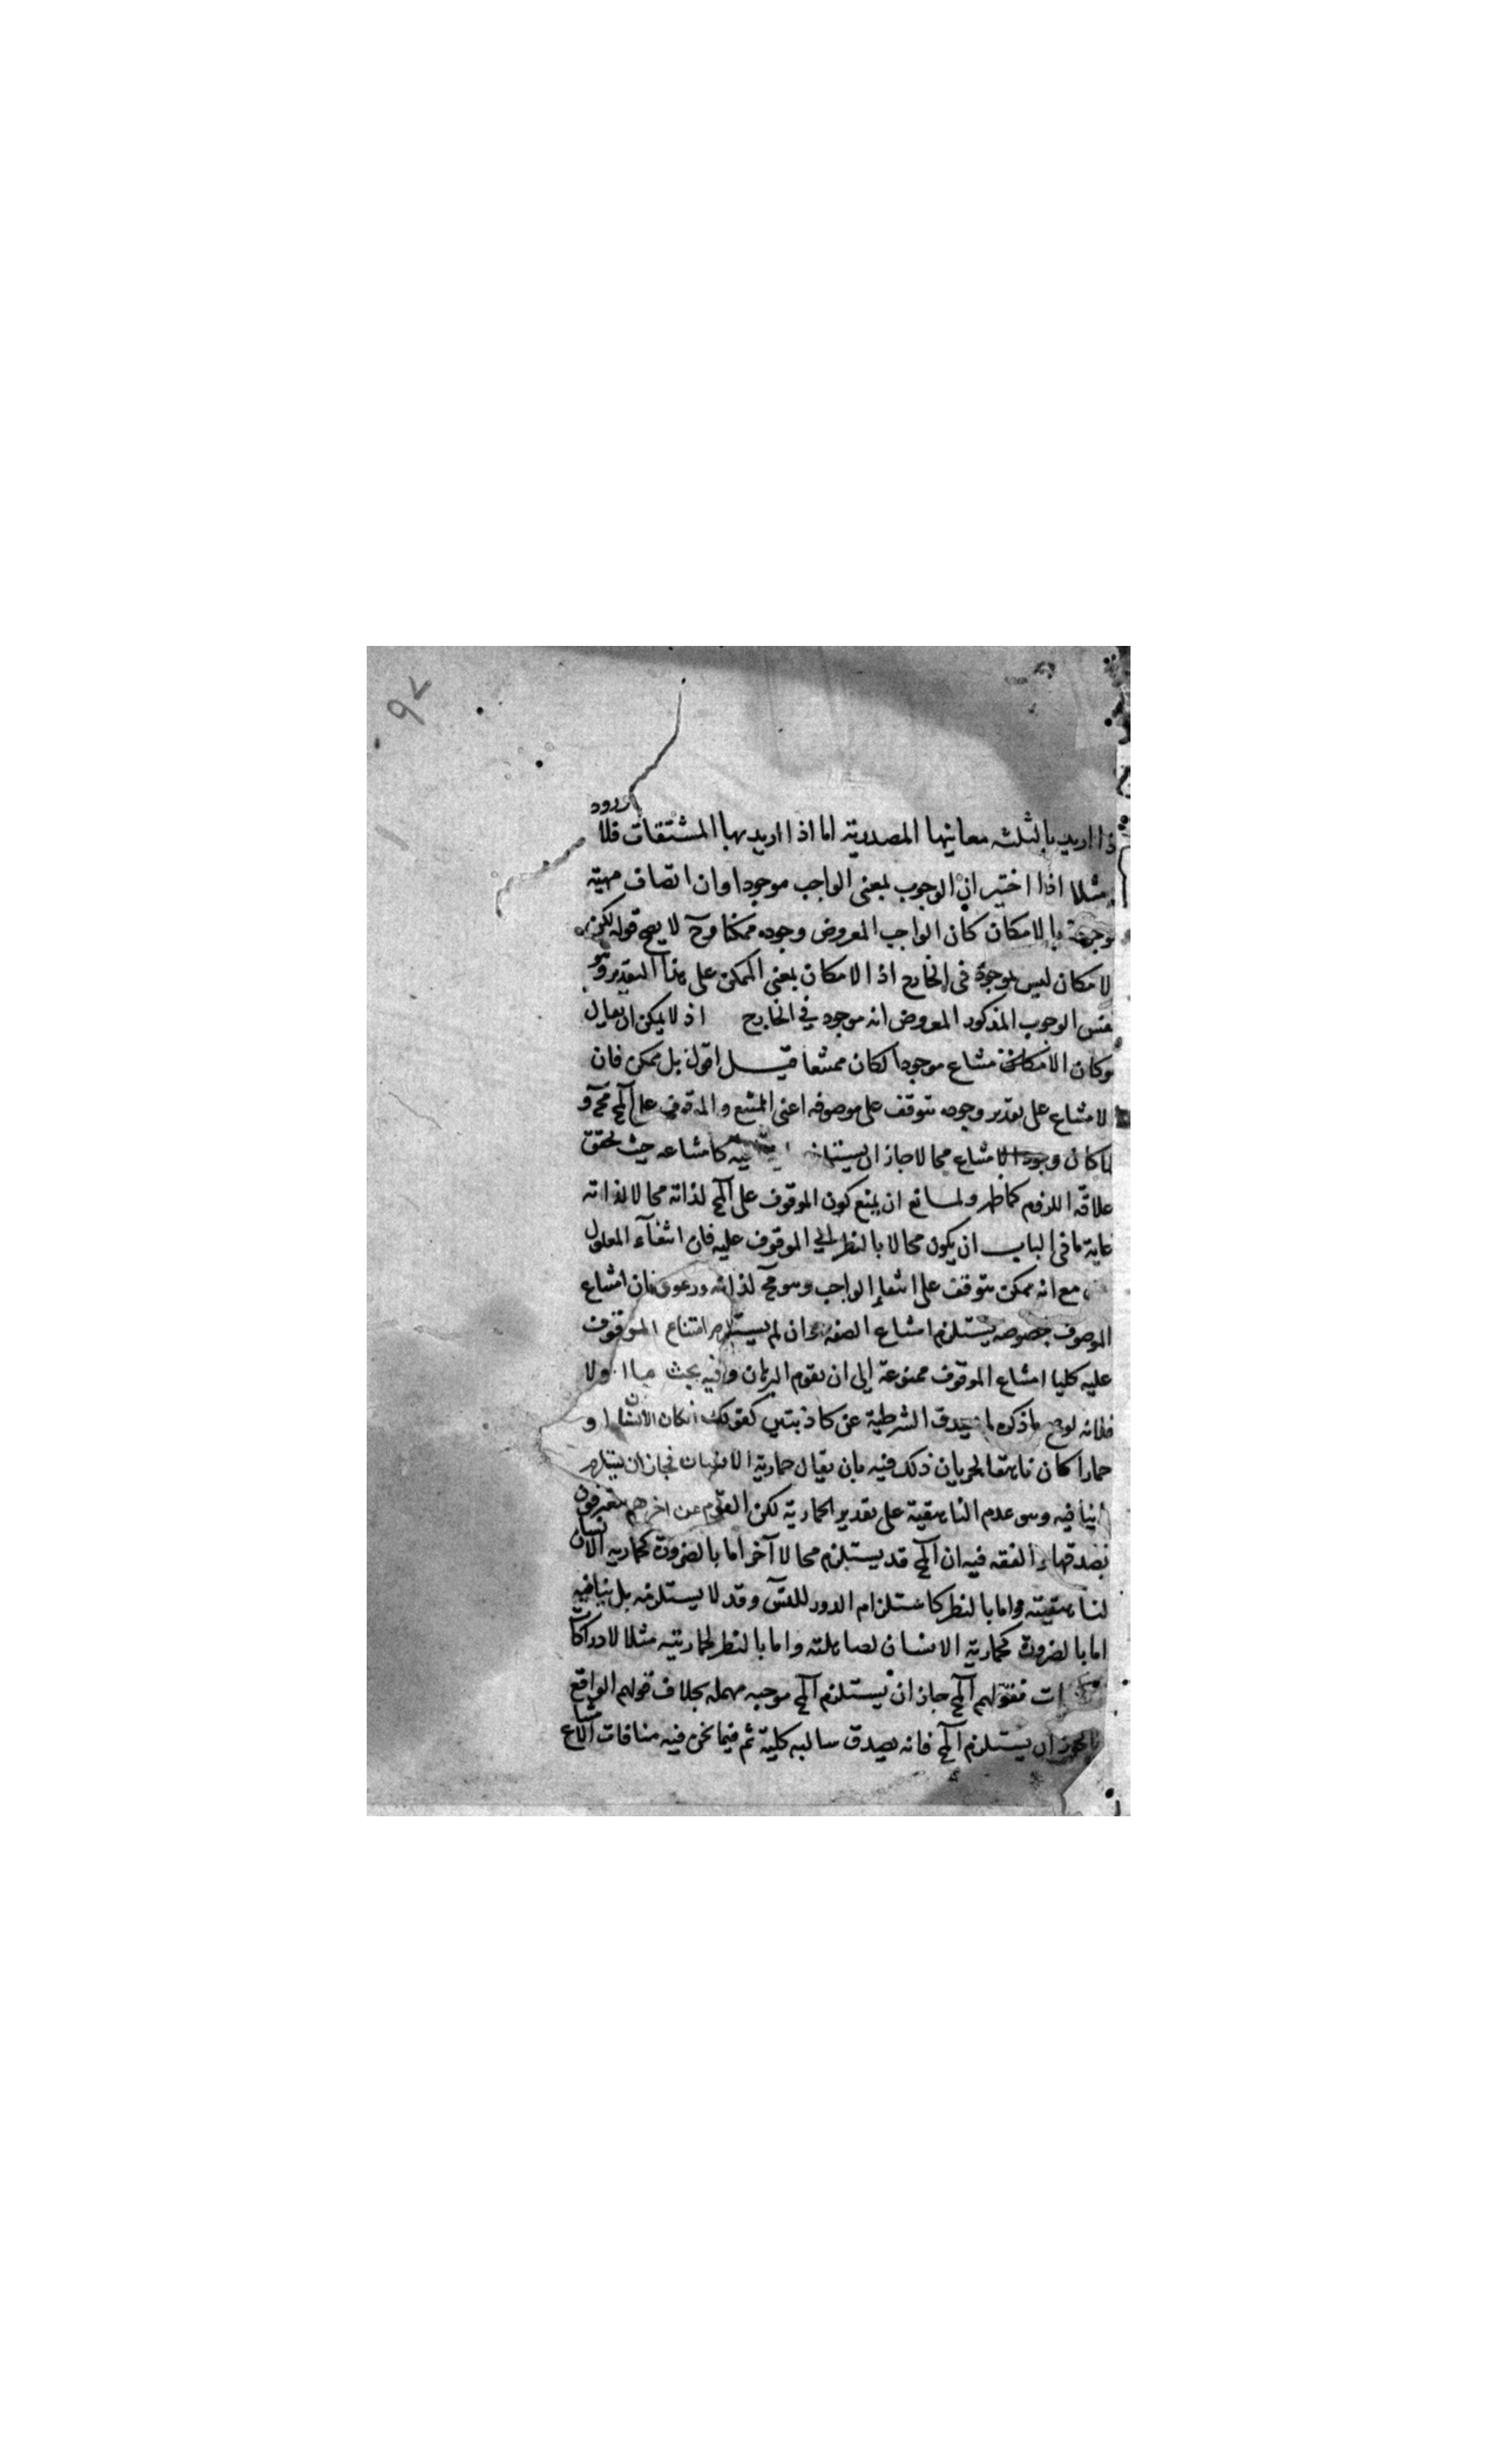 ذا اريد بالثلثه معاينها المصدرية اما اذا اريد بها المشتقات فلا ورود
مثلا اذا اختير ان الوجوب بمعنى الواجب موجود او ان اتصاف مهية
بالامكان كان الواجب المعروض وجوده ممكنا وح لا يصح قوله لكن
لامكان ليس بموجود فى الخارج اذ الامكان بمعنى الممكن على هذا التقدير وهو
نفس الوجوب المذكور المعروض انه موجود في الخارج اذ لا يمكن ان يقال
لوكان الامتناع موجودا لكان ممتنعا قيل اقول بل ممكن فان
لامتناع على تقدير وجوده يتوقف على موصوفه اعنى الممتنع والموقوف على المح مح و
لما كان وجود الامتناع محالا جاز ان كامتناعه حيث تحقق
علاقة اللزوم كما ظهر ولمانع ان يمنع كون الموقوف على المح لذاته محالا لذاته
غاية ما فى الباب ان يكون محالا بالنظر الى الموقوف عليه فان انتفاء المعلول
مع انه ممكن يتوقف على انتفاء الواجب وهو مح لذاته ودعوى ان امتناع
الموصوف بخصوصه يستلزم امتناع الصفة وان لم يستلزم امتناع الموقوف
عليه كليا امتناع الموقوف ممنوعة الى ان يقوم البرهان وفيه بحث اما اولا
فلانه لو صح ما ذكره لم يصدق الشرطية عن كاذبتين كقولك ان كان الانسان
حمارا كان ناهقا لجريان ذلك فيه بان يقال حمارية الانسان فجاز ان يستلزم
ينافيه وهو عدم الناهقية على تقدير الحمارية لكن القوم عن اخرهم معترفون
بصدقها والفقه فيه ان المح قد يستلزم محالا آخر اما بالضرورة كحمارية الانسان
لناهقيته واما بالنظر كاستلزام الدور للتس وقد لا يستلزمه بل ينافيه
اما بالضرورة كحمارية الانسان لصاهلته واما بالنظر لحماريته مثلا لادراك
فقولهم المح جاز ان يستلزم المح موجبه مهمله بخلاف قولهم الواقع
لا يجوز ان يستلزم المح فانه يصدق سالبه كلية ثم فيما نحن فيه منافات الامتناع